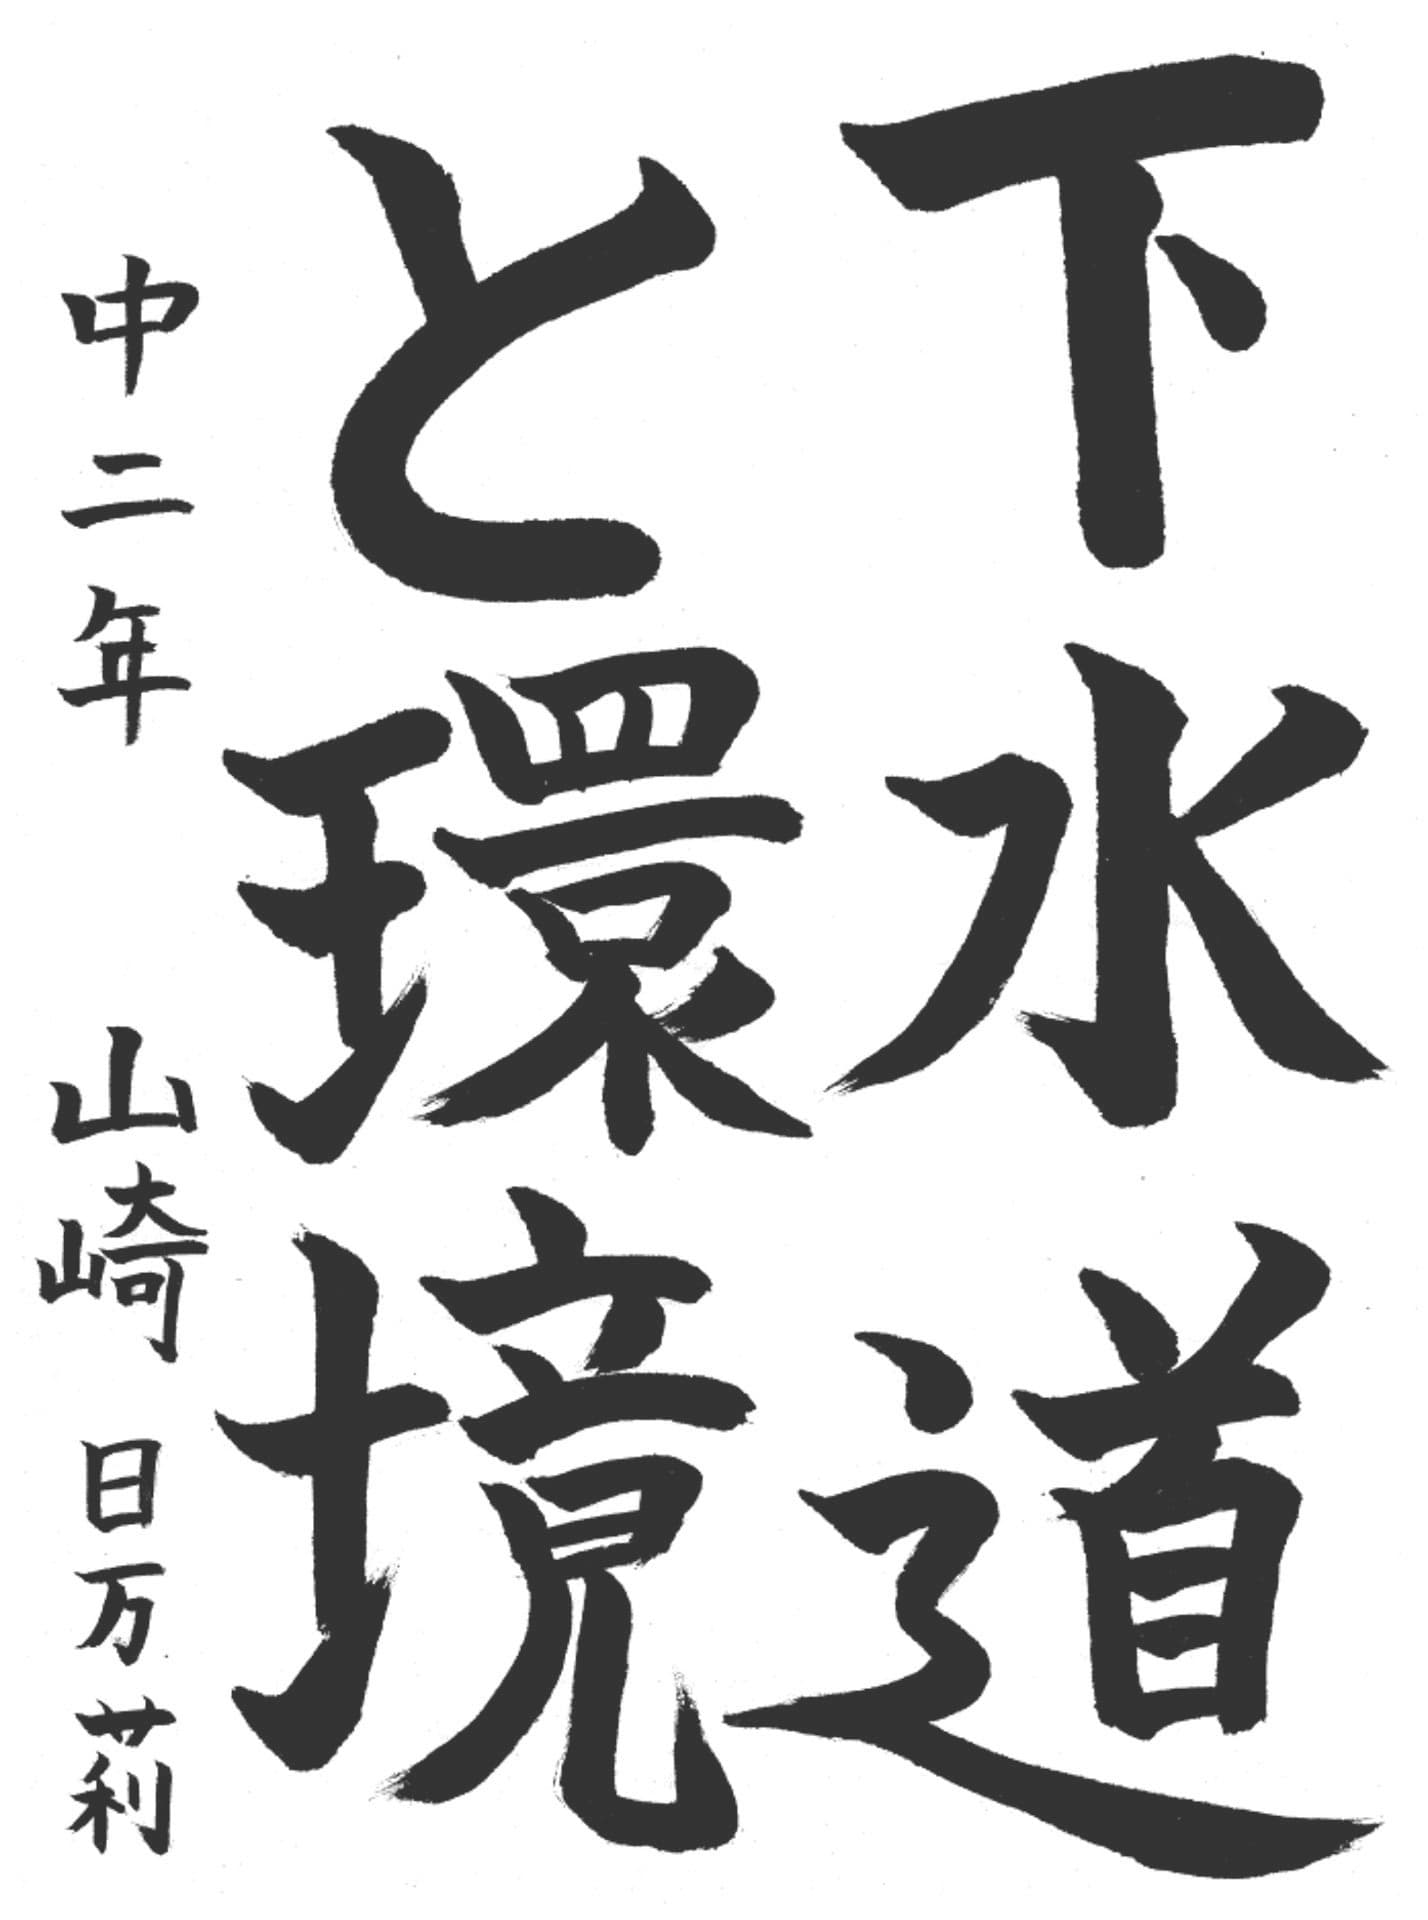 下水道
と環境
中二年 山崎日万莉